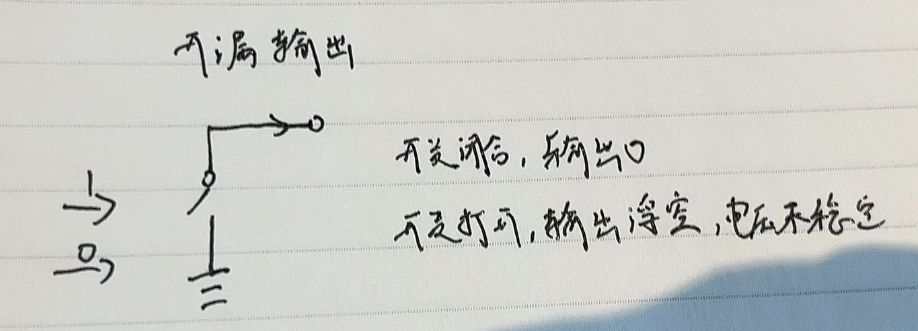 开漏输出
开关闭合，输出0
1
开关打开，输出浮空，电压不稳定
0